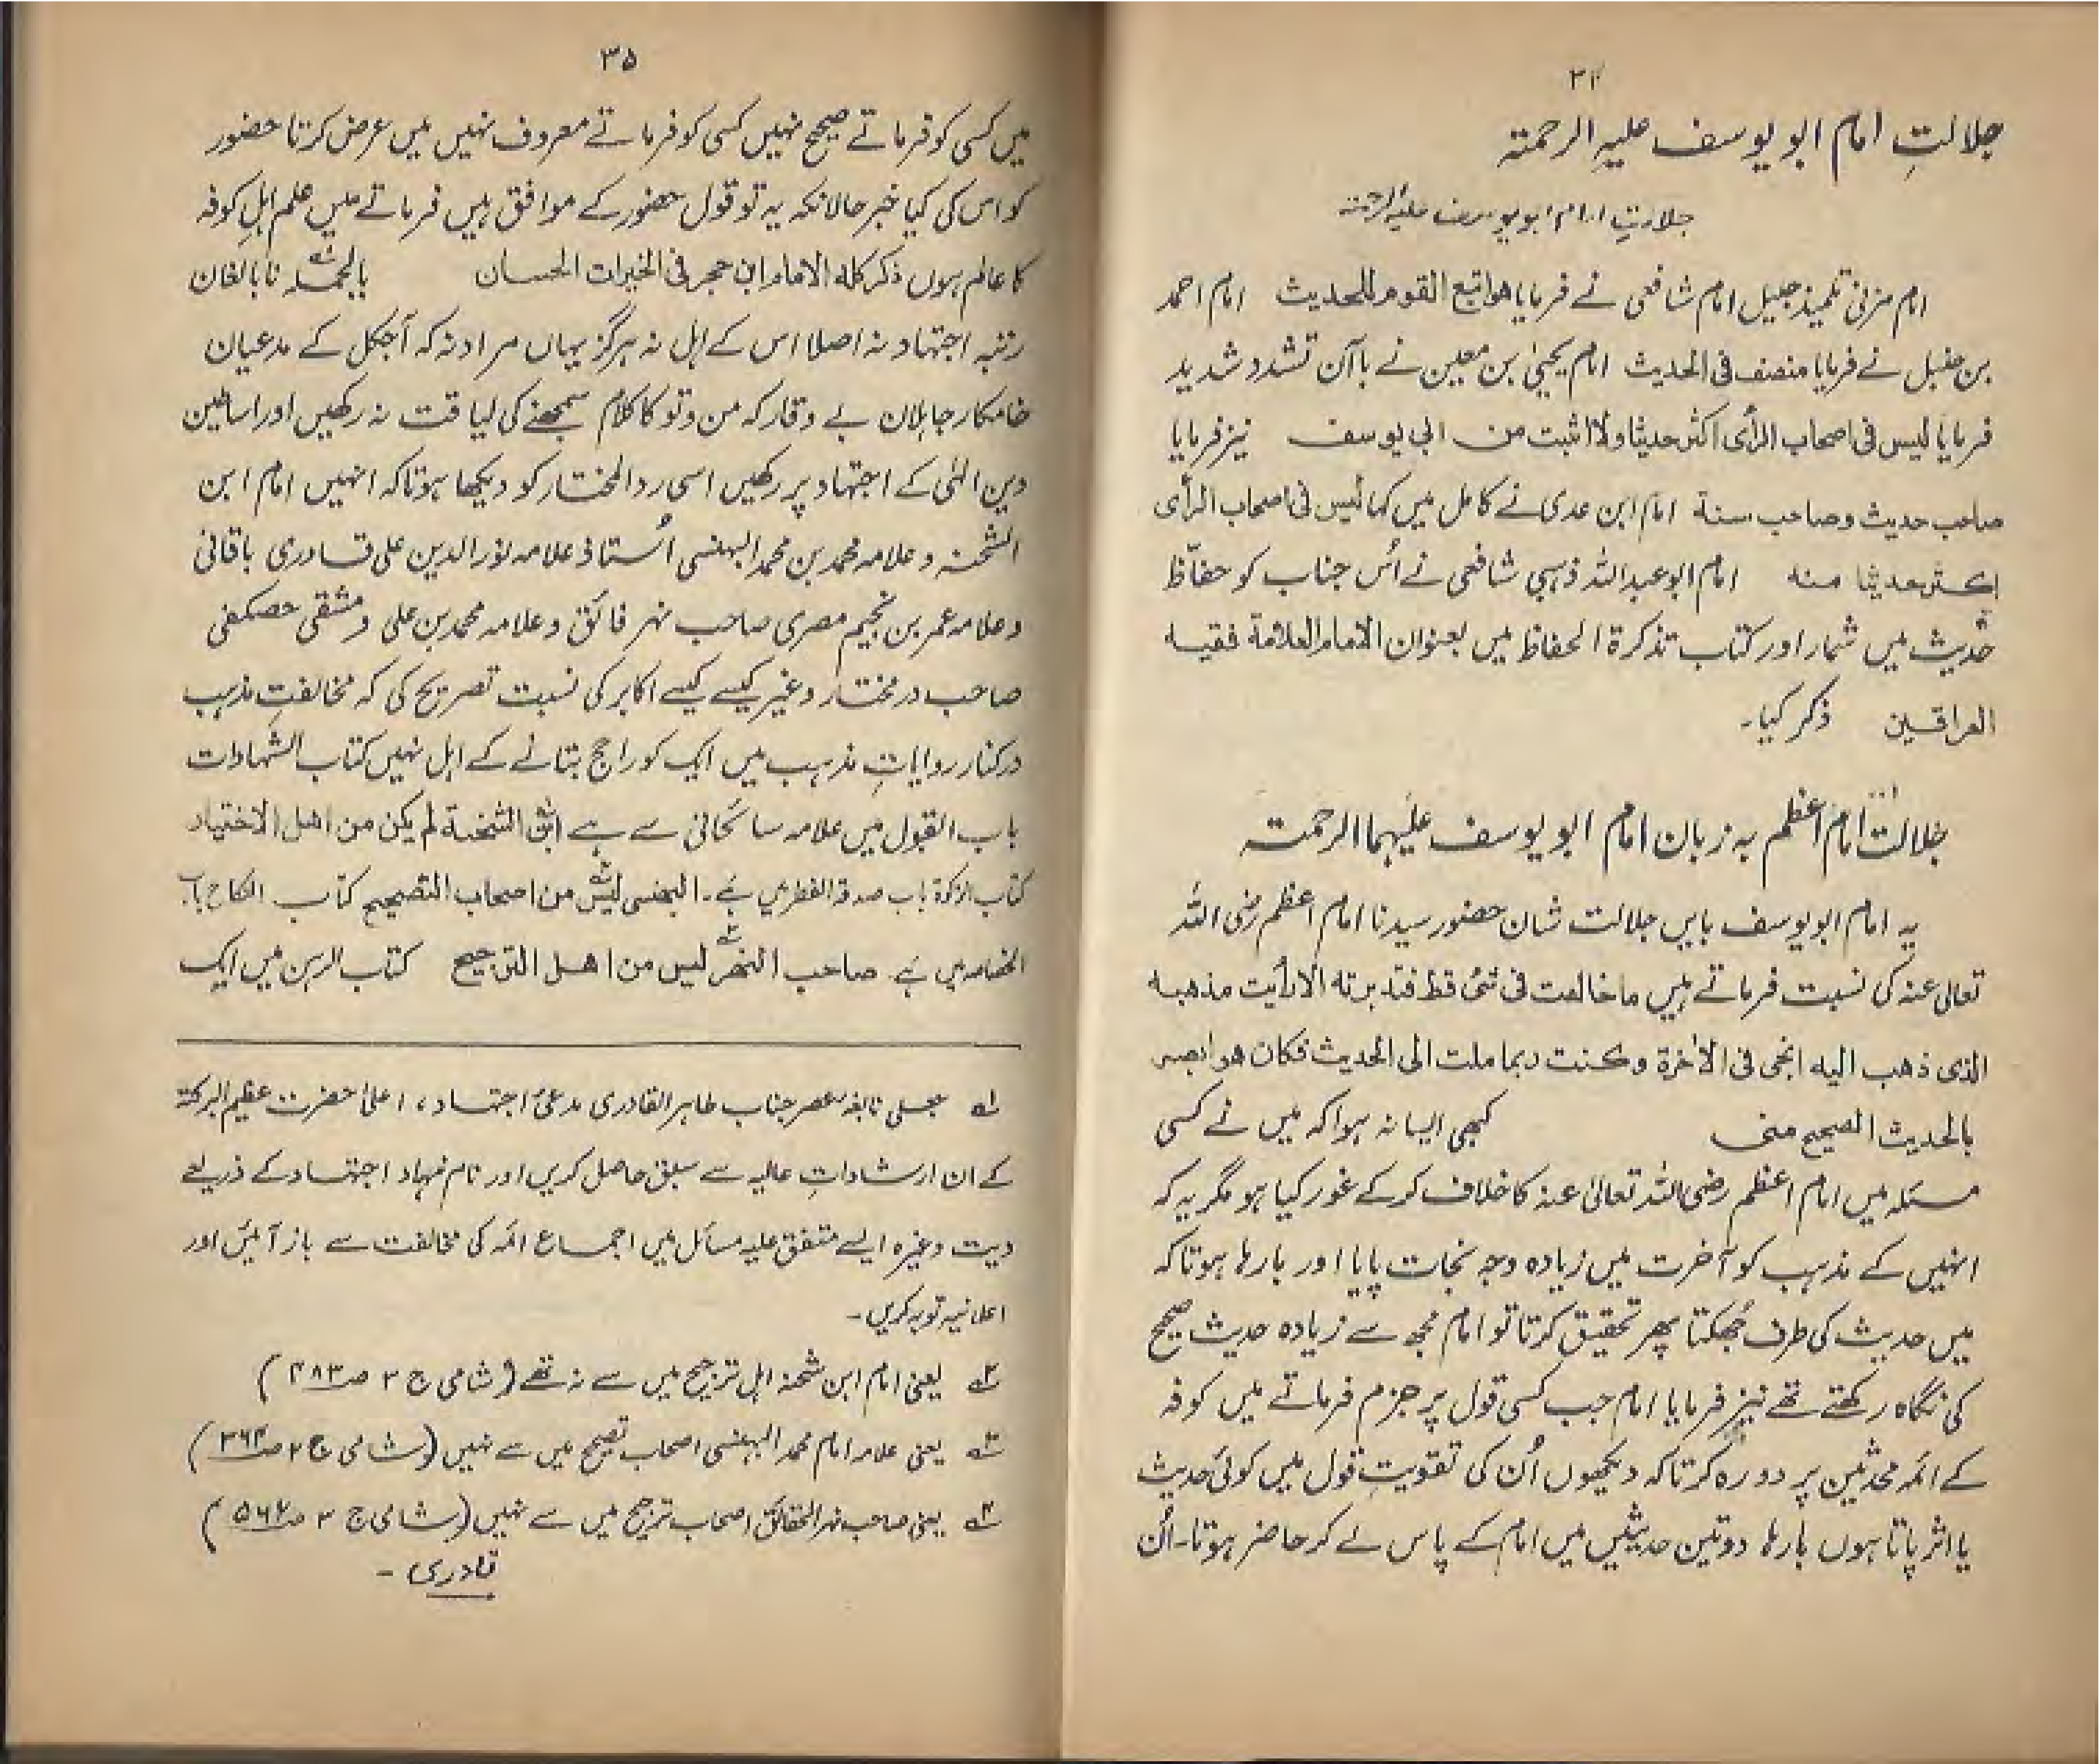 ۳۴
جلالتِ امام ابو یوسف علیہ الرحمتہ
جلالتِ امام ابو یوسف علیہ الرحمتہ
امام مزنی تلمیذ جلیل امام شافعی نے فرمایا هو اتبع القوم للحديث امام احمد
بن حنبل نے فرمایا منصف فی الحدیث امام یحییٰ بن معین نے باآن تشدد شدید
فرمایا لیس فی اصحاب الرأی اکثر حدیثا ولا اثبت من ابی یوسف نیز فرمایا
صاحب حدیث وصاحب سنة امام ابن عدی نے کامل میں کہا لیس فی اصحاب الرأی
اکثر حدیثا منه امام ابو عبداللہ ذہبی شافعی نے اُس جناب کو حفاظ
حدیث میں شمار اور کتاب تذکرۃ الحفاظ میں بعنوان الامام العلامة فقیہ
العراقین ذکر کیا۔
جلالت امام اعظم بہ زبان امام ابو یوسف علیہما الرحمتہ
یہ امام ابو یوسف بایں جلالت شان حضور سیدنا امام اعظم رضی اللہ
تعالیٰ عنہ کی نسبت فرماتے ہیں ما خالفت فی شئ قط فتدبرته الا رأیت مذهبه
الذی ذهب الیه انجی فی الآخرة وکنت ربما ملت الی الحدیث فکان هو ابصر
بالحدیث الصحیح منی کبھی ایسا نہ ہوا کہ میں نے کسی
مسئلہ میں امام اعظم رضی اللہ تعالیٰ عنہ کا خلاف کرکے غور کیا ہو مگر یہ کہ
انہیں کے مذہب کو آخرت میں زیادہ وجہ نجات پایا اور بارہا ہوتا کہ
میں حدیث کی طرف جُھکتا پھر تحقیق کرتا تو امام مجھ سے زیادہ حدیث صحیح
کی نگاہ رکھتے تھے نیز فرمایا امام جب کسی قول پر جزم فرماتے میں کوفہ
کے ائمہ محدثین پر دورہ کرتا کہ دیکھوں اُن کی تقویت قول میں کوئی حدیث
یا اثر پاتا ہوں بارہا دو تین حدیثیں میں امام کے پاس لے کر حاضر ہوتا۔ اُن
۳۵
میں کسی کو فرماتے صحیح نہیں کسی کو فرماتے معروف نہیں میں عرض کرتا حضور
کو اس کی کیا خبر حالانکہ یہ تو قول حضور کے موافق ہیں فرماتے میں علم اہلِ کوفہ
کا عالم ہوں ذکر کله الامام ابن حجر فی الخیرات الحسان بالجملہ نا بالغان
رتبہ اجتہاد نہ اصلا اس کے اہل نہ ہرگز یہاں مراد نہ کہ آجکل کے مدعیان
خامکار جاہلان بے وقار کہ من و تو کا کلام سمجھنے کی لیاقت نہ رکھیں اور اساطین
دین الٰہی کے اجتہاد پر رکھیں اسی رد المختار کو دیکھا ہوتا کہ انہیں امام ابن
الشحنہ و علامہ محمد بن محمد البہنسی اُستاذ علامہ نور الدین علی قادری باقانی
و علامہ عمر بن نجیم مصری صاحب نہر فائق و علامہ محمد بن علی دمشقی حصکفی
صاحب در مختار وغیر کیسے کیسے اکابر کی نسبت تصریح کی کہ مخالفتِ مذہب
درکنار روایاتِ مذہب میں ایک کو راجح بتانے کے اہل نہیں کتاب الشہادات
باب القبول میں علامہ سائحانی سے ہے ابن الشحنة لم یکن من اهل الاختیار
کتاب الزکوۃ باب صدقۃ الفطر میں ہے۔ البهنسی لیس من اصحاب التصحیح کتاب النکاح باب
الحضانہ میں ہے صاحب النهر لیس من اهل الترجیح کتاب الرہن میں ایک
۱؎ جیسے نابغہ عصر جناب طاہر القادری مدعیٔ اجتہاد، اعلیٰ حضرت عظیم البرکتہ
کے ان ارشاداتِ عالیہ سے سبق حاصل کریں اور نام نہاد اجتہاد کے ذریعے
دیت وغیرہ ایسے متفق علیہ مسائل میں اجماع ائمہ کی مخالفت سے باز آئیں اور
اعلانیہ توبہ کریں۔
۲؎ یعنی امام ابن شحنہ اہل ترجیح میں سے نہ تھے (شامی ج ۴ صـ ۳۸۳)
۳؎ یعنی علامہ امام محمد البہنسی اصحاب تصحیح میں سے نہیں (شامی ج ۲ صـ ۳۶۴)
۴؎ یعنی صاحب نہر الحقائق اصحاب ترجیح میں سے نہیں (شامی ج ۳ صـ ۵۶۷)
قادری۔